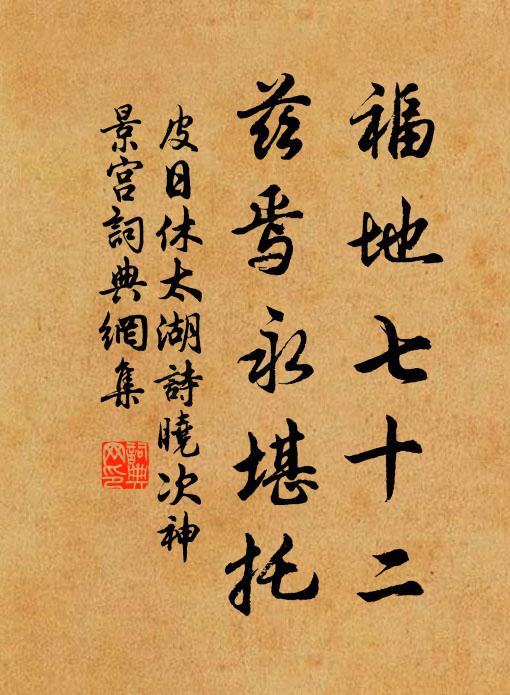 福地七十二
茲焉永堪托
皮日休太湖詩曉次神
景宮詞典網集
詞典網印